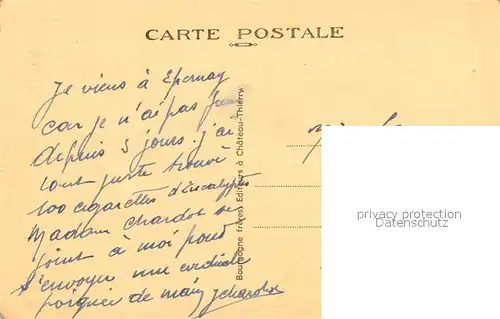 CARTE POSTALE
Je viens à Epernay
car je n'ai pas fumé
depuis 3 jours. j'ai
tout juste trouvé
100 cigarettes d'Eucalyptus
Madame Chardot se
joint à moi pour
t'envoyer une cordiale
poignée de main
Bourgogne frères Editeurs à Château-Thierry
privacy protection
Datenschutz